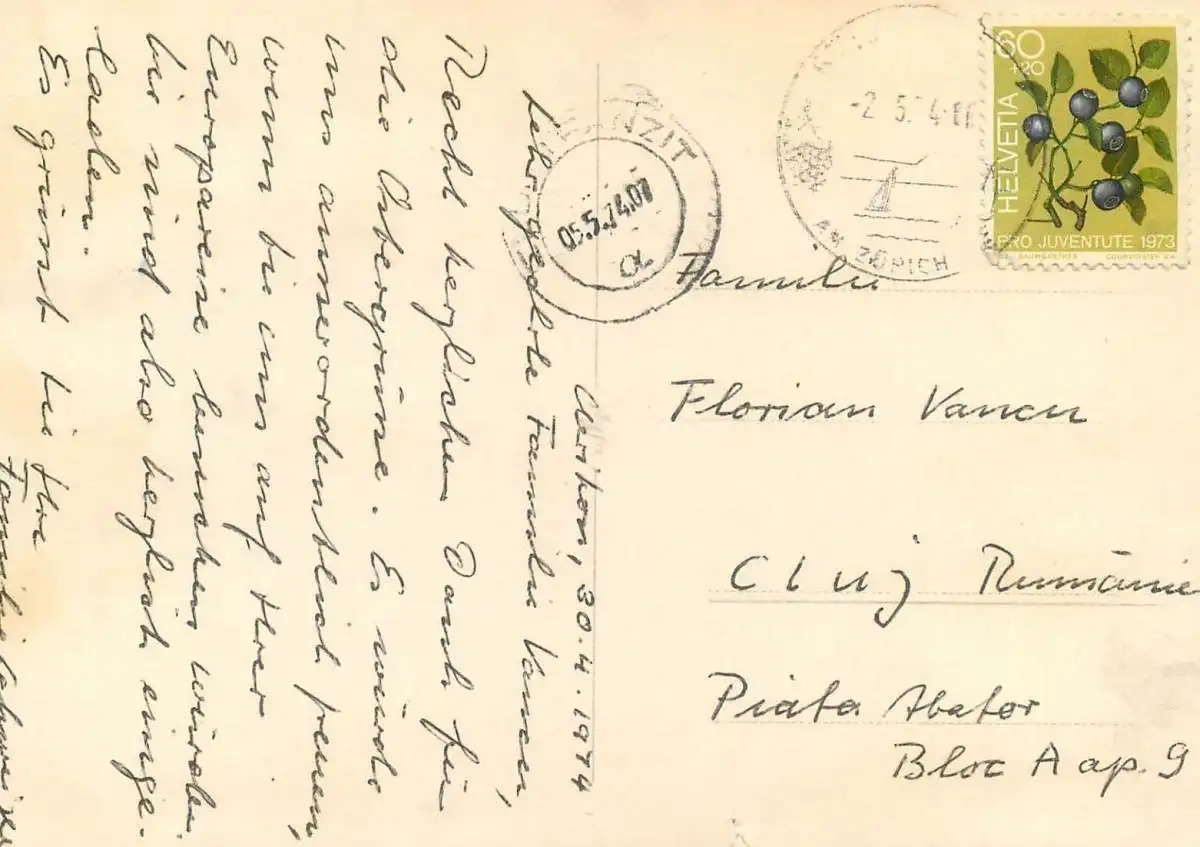 Uerikon, 30.4.1974
Sehr geehrte Familie Vancu,
Recht herzlichen Dank für
die Ostergrüsse. Es würde
uns ausserordentlich freuen,
wenn Sie uns auf Ihrer
Europareise besuchen würden.
Sie sind also herzlich einge-
laden.
Es grüsst Sie Ihre
Familie
TRANZIT
05.5.74.07
α
-2.5.74-
AM ZÜRICH
60
+20
HELVETIA
PRO JUVENTUTE 1973
COURVOISIER S.A.
Familie
Florian Vancu
Cluj Rumänie
Piata Abator
Bloc A ap. 9